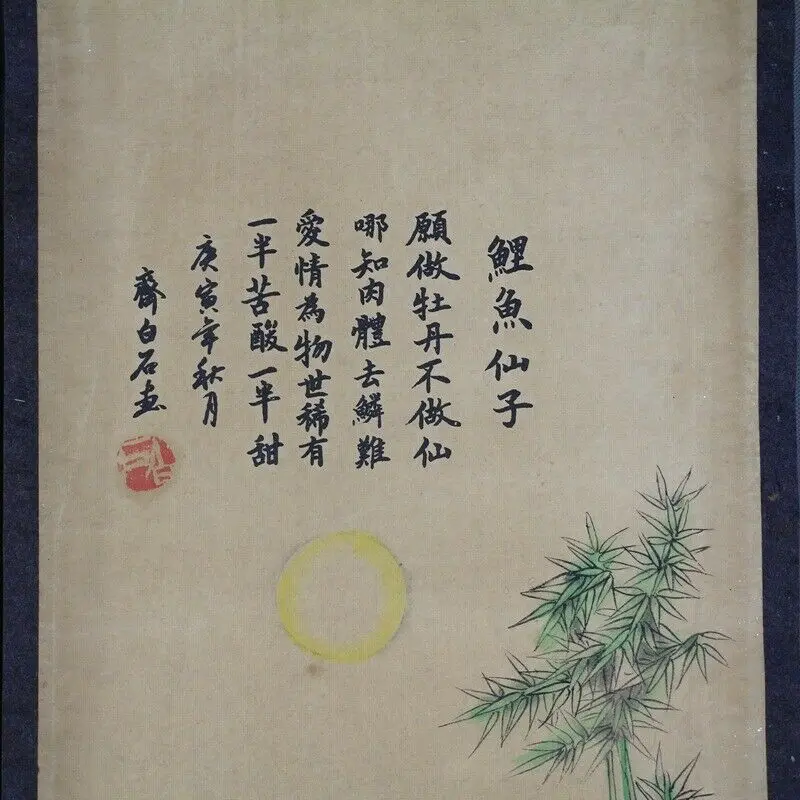 鯉魚仙子
願做牡丹不做仙
哪知肉體去鱗難
愛情為物世稀有
一半苦酸一半甜
庚寅年秋月
齊白石畫